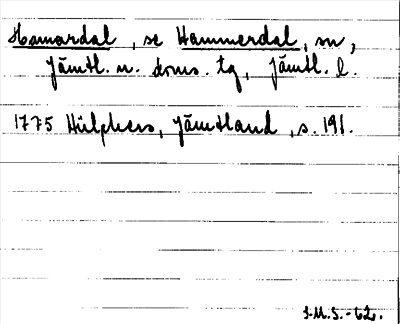 Hamardal, se Hammerdal, sn,
Jämtl. n. doms. tg, Jämtl. l.
1775 Hülphers, Jämtland, s. 191.
J.M.S.-62.